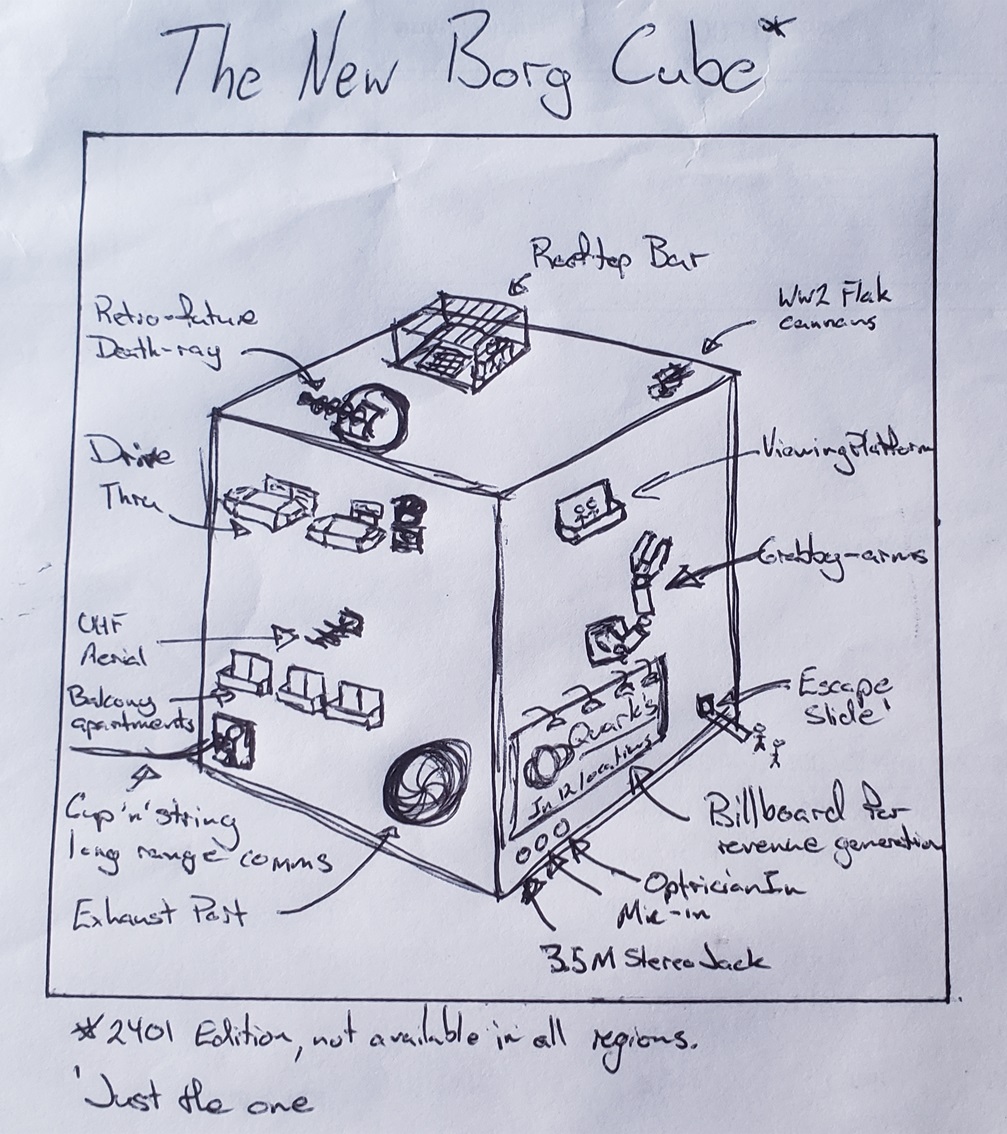 The New Borg Cube*
Rooftop Bar
Retro-future
Death-ray
WW2 Flak
cannons
Drive
Thru
Viewing Platform
Grabby-arms
UHF
Aerial
Balcony
apartments
Escape
Slide'
Quark's
In 12 locations
Cup 'n' string
long range comms
Billboard for
revenue generation
Exhaust Port
Optrician In
Mic-in
3.5M Stereo Jack
*2401 Edition, not available in all regions.
'Just the one